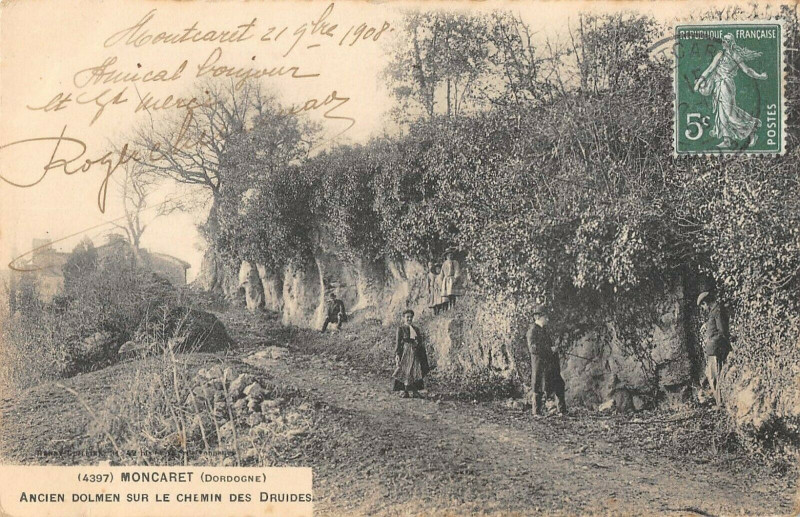 Montcaret 21 9bre 1908
Amical bonjour
et gd merci
Roger
REPUBLIQUE FRANÇAISE
5c
POSTES
(4397) MONCARET (DORDOGNE)
ANCIEN DOLMEN SUR LE CHEMIN DES DRUIDES